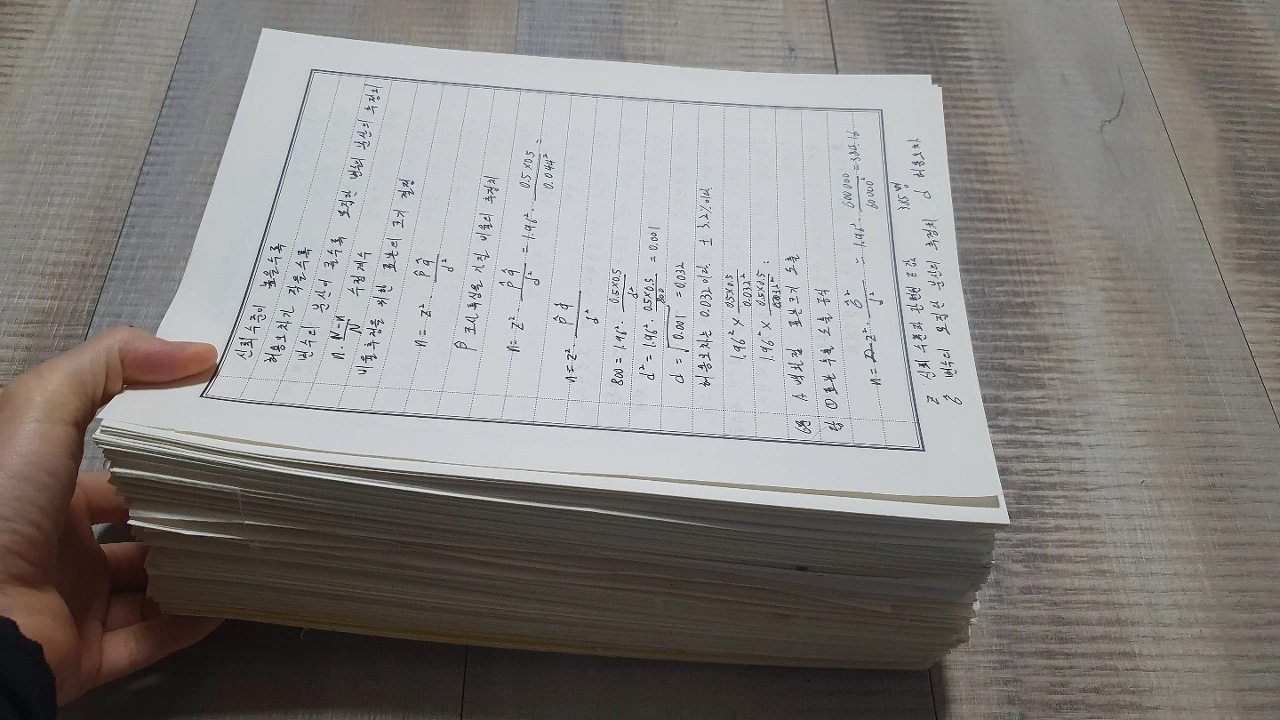 신뢰수준이 높을수록
허용오차가 작을수록
변수의 분산이 클수록 모집단 변수 분산의 추정치
n · N-n / N 수정계수
비율 추정을 위한 표본의 크기 결정
n = z² p̂ q̂ / d²
p̂ 표시 특성을 가진 비율의 추정치
n = z² · p̂ q̂ / d² = 1.96² · 0.5×0.5 / 0.044² =
n = z² · p̂ q̂ / d²
800 = 1.96² · 0.5×0.5 / d²
d² = 1.96² · 0.5×0.5 / 800 = 0.001
d = √0.001 = 0.032
허용오차는 0.032이며 ± 3.2%이다
1.96² × 0.5×0.5 / 0.032²
1.96² × 0.5×0.5 / 0.032² :
6번 A 대리점 표본크기 도출
답 ① 표본 수를 도출 공식
n = z² · σ̂² / d² = 1.96² · 600000 / 60000 = 384.16
385명
z 신뢰수준과 관련된 z값 d 허용오차
σ̂ 변수의 모집단 분산의 추정치